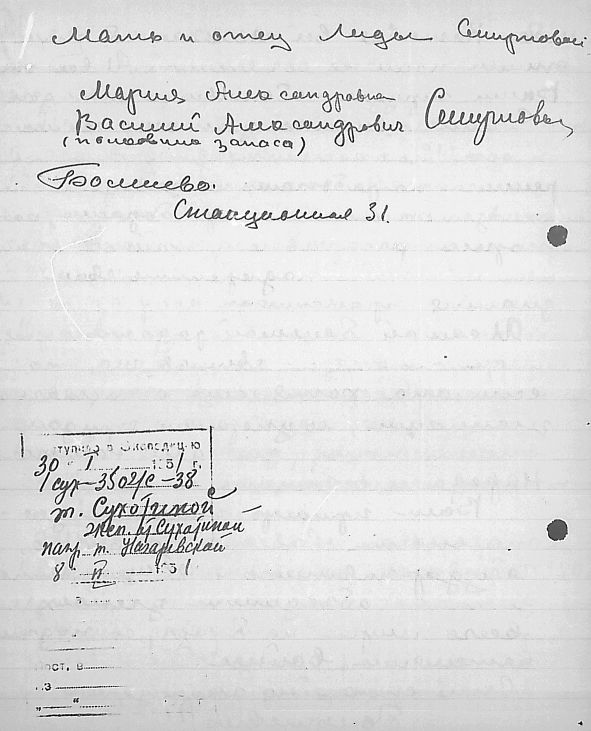 Мать и отец Лиды Смирновой
Мария Александровна
Василий Александрович Смирновы
(половина запаса)
Болшево.
Станционная 31.
ступило в Экспедицию
30 " I 1951 г.
1 сух-3502/с-38
т. Сухотиной
экп. от Сухотиной
напр. т.
8 II 1951
ост. в
из